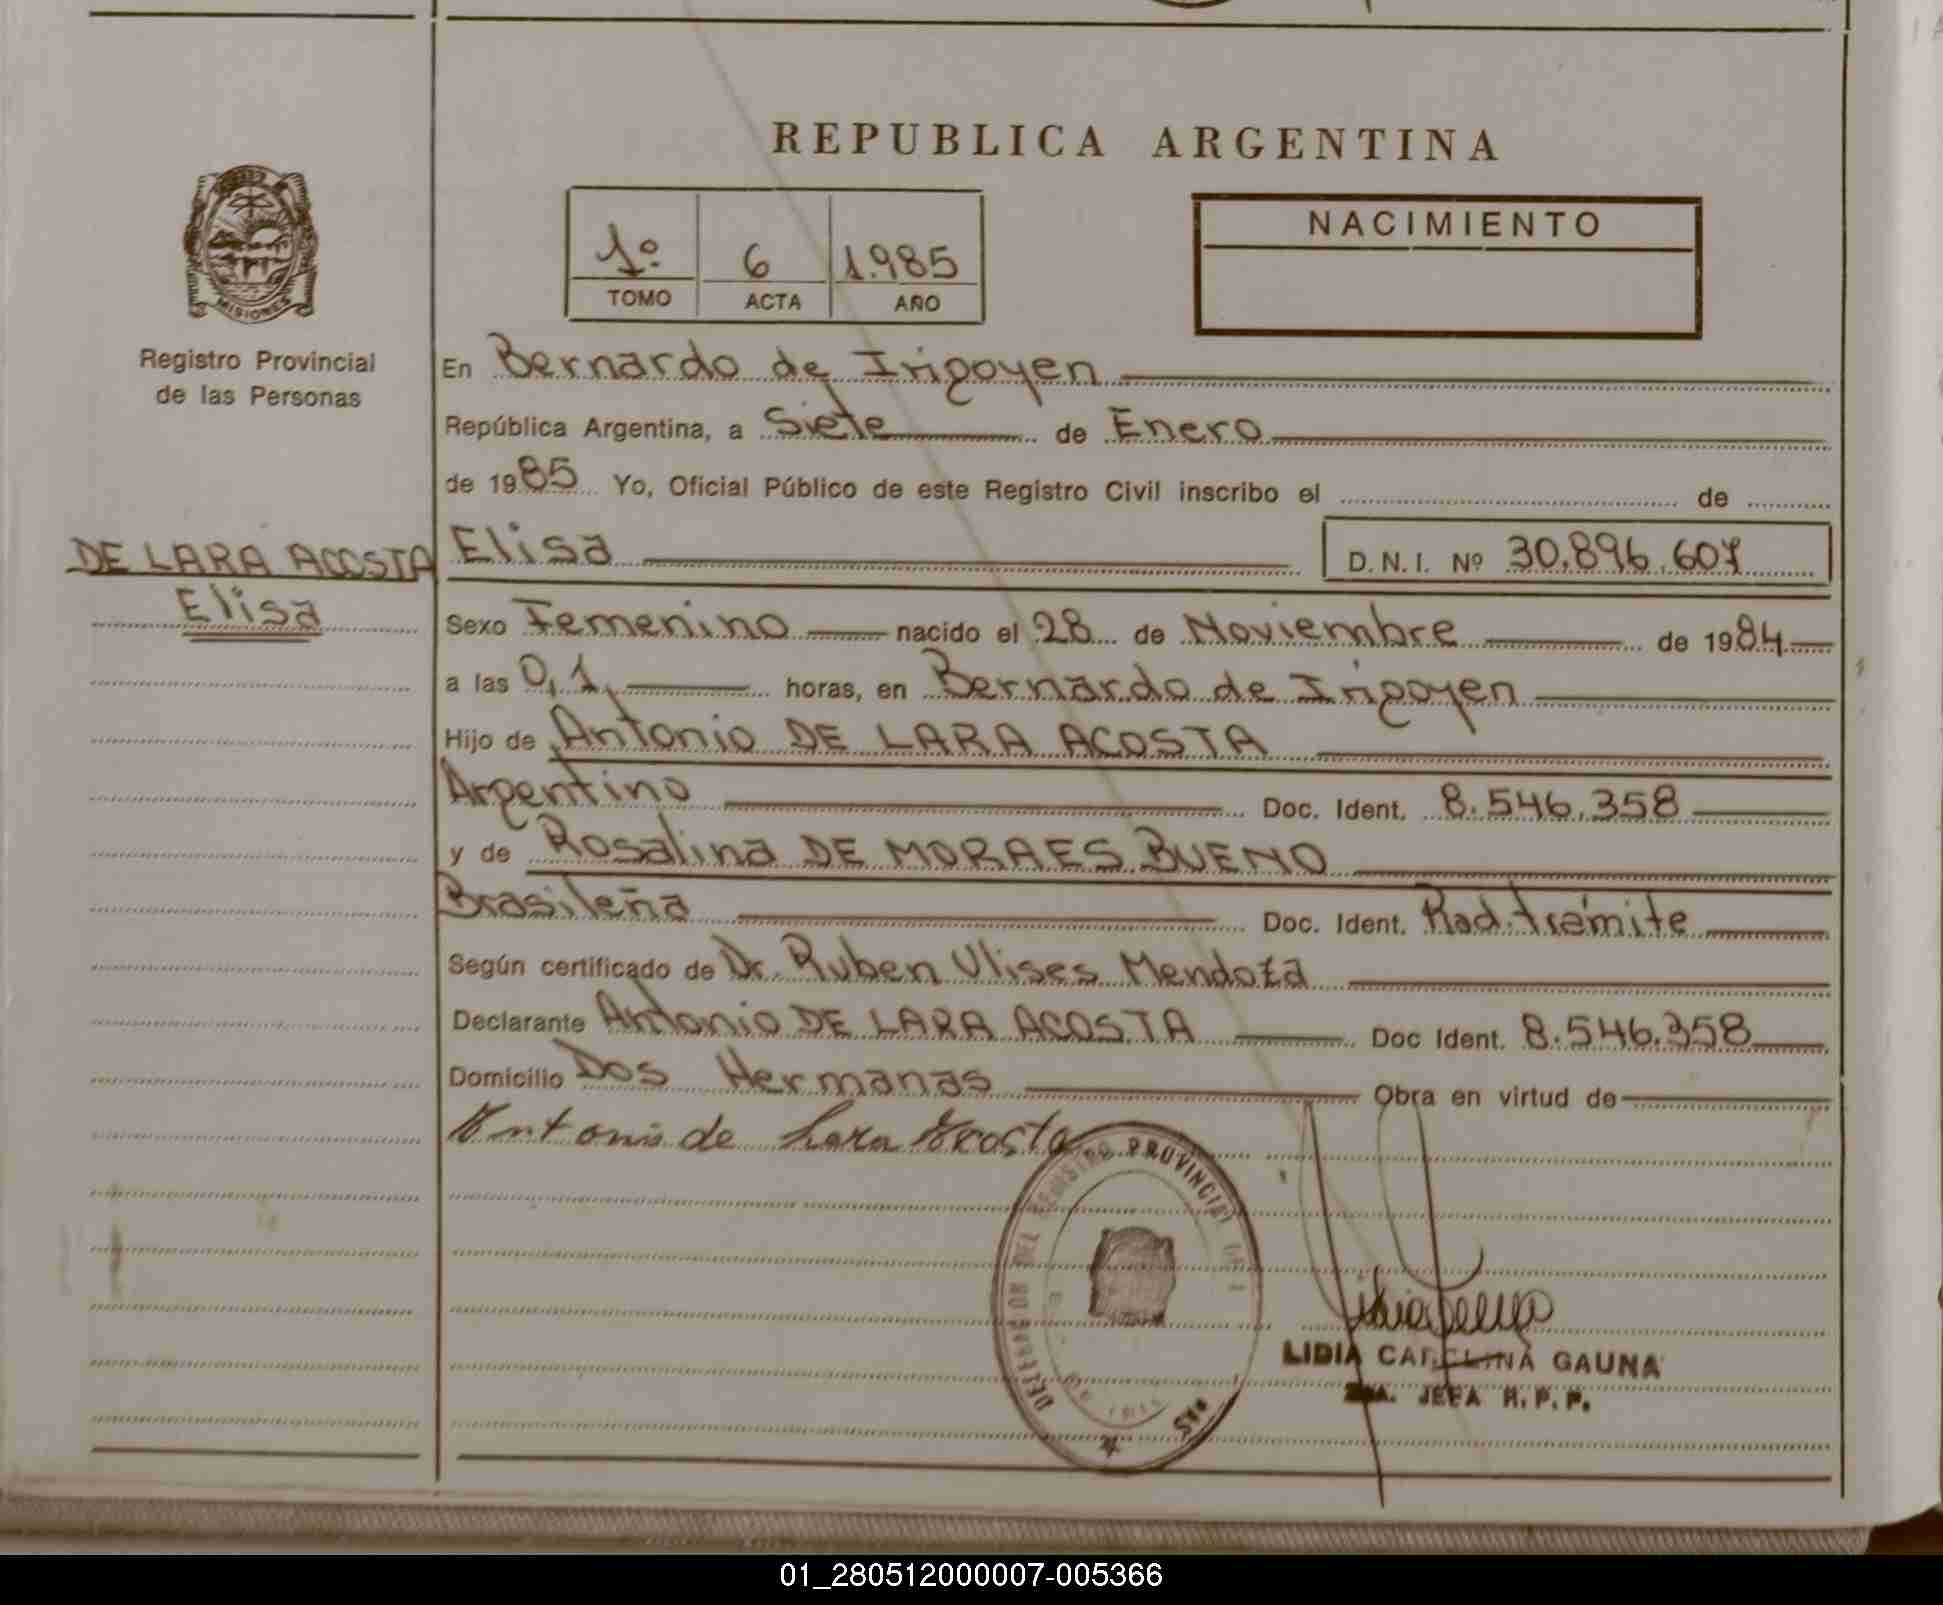 REPUBLICA ARGENTINA
1º 6 1.985
TOMO ACTA AÑO
NACIMIENTO
MISIONES
Registro Provincial
de las Personas
DE LARA ACOSTA
Elisa
En Bernardo de Irigoyen
República Argentina, a Siete de Enero
de 1985 Yo, Oficial Público de este Registro Civil inscribo el de
Elisa D.N.I. Nº 30.896.607
Sexo Femenino nacido el 28 de Noviembre de 1984
a las 0,1, horas, en Bernardo de Irigoyen
Hijo de Antonio DE LARA ACOSTA
Argentino Doc. Ident. 8.546.358
y de Rosalina DE MORAES BUENO
Brasileña Doc. Ident. Rad. trámite
Según certificado de Dr. Ruben Ulises Mendoza
Declarante Antonio DE LARA ACOSTA Doc Ident. 8.546.358
Domicilio Dos Hermanas Obra en virtud de
Antonio de Lara Acosta
DEL REGISTRO PROVINCIAL
LIDIA CAROLINA GAUNA
JEFA R.P.P.
01_280512000007-005366